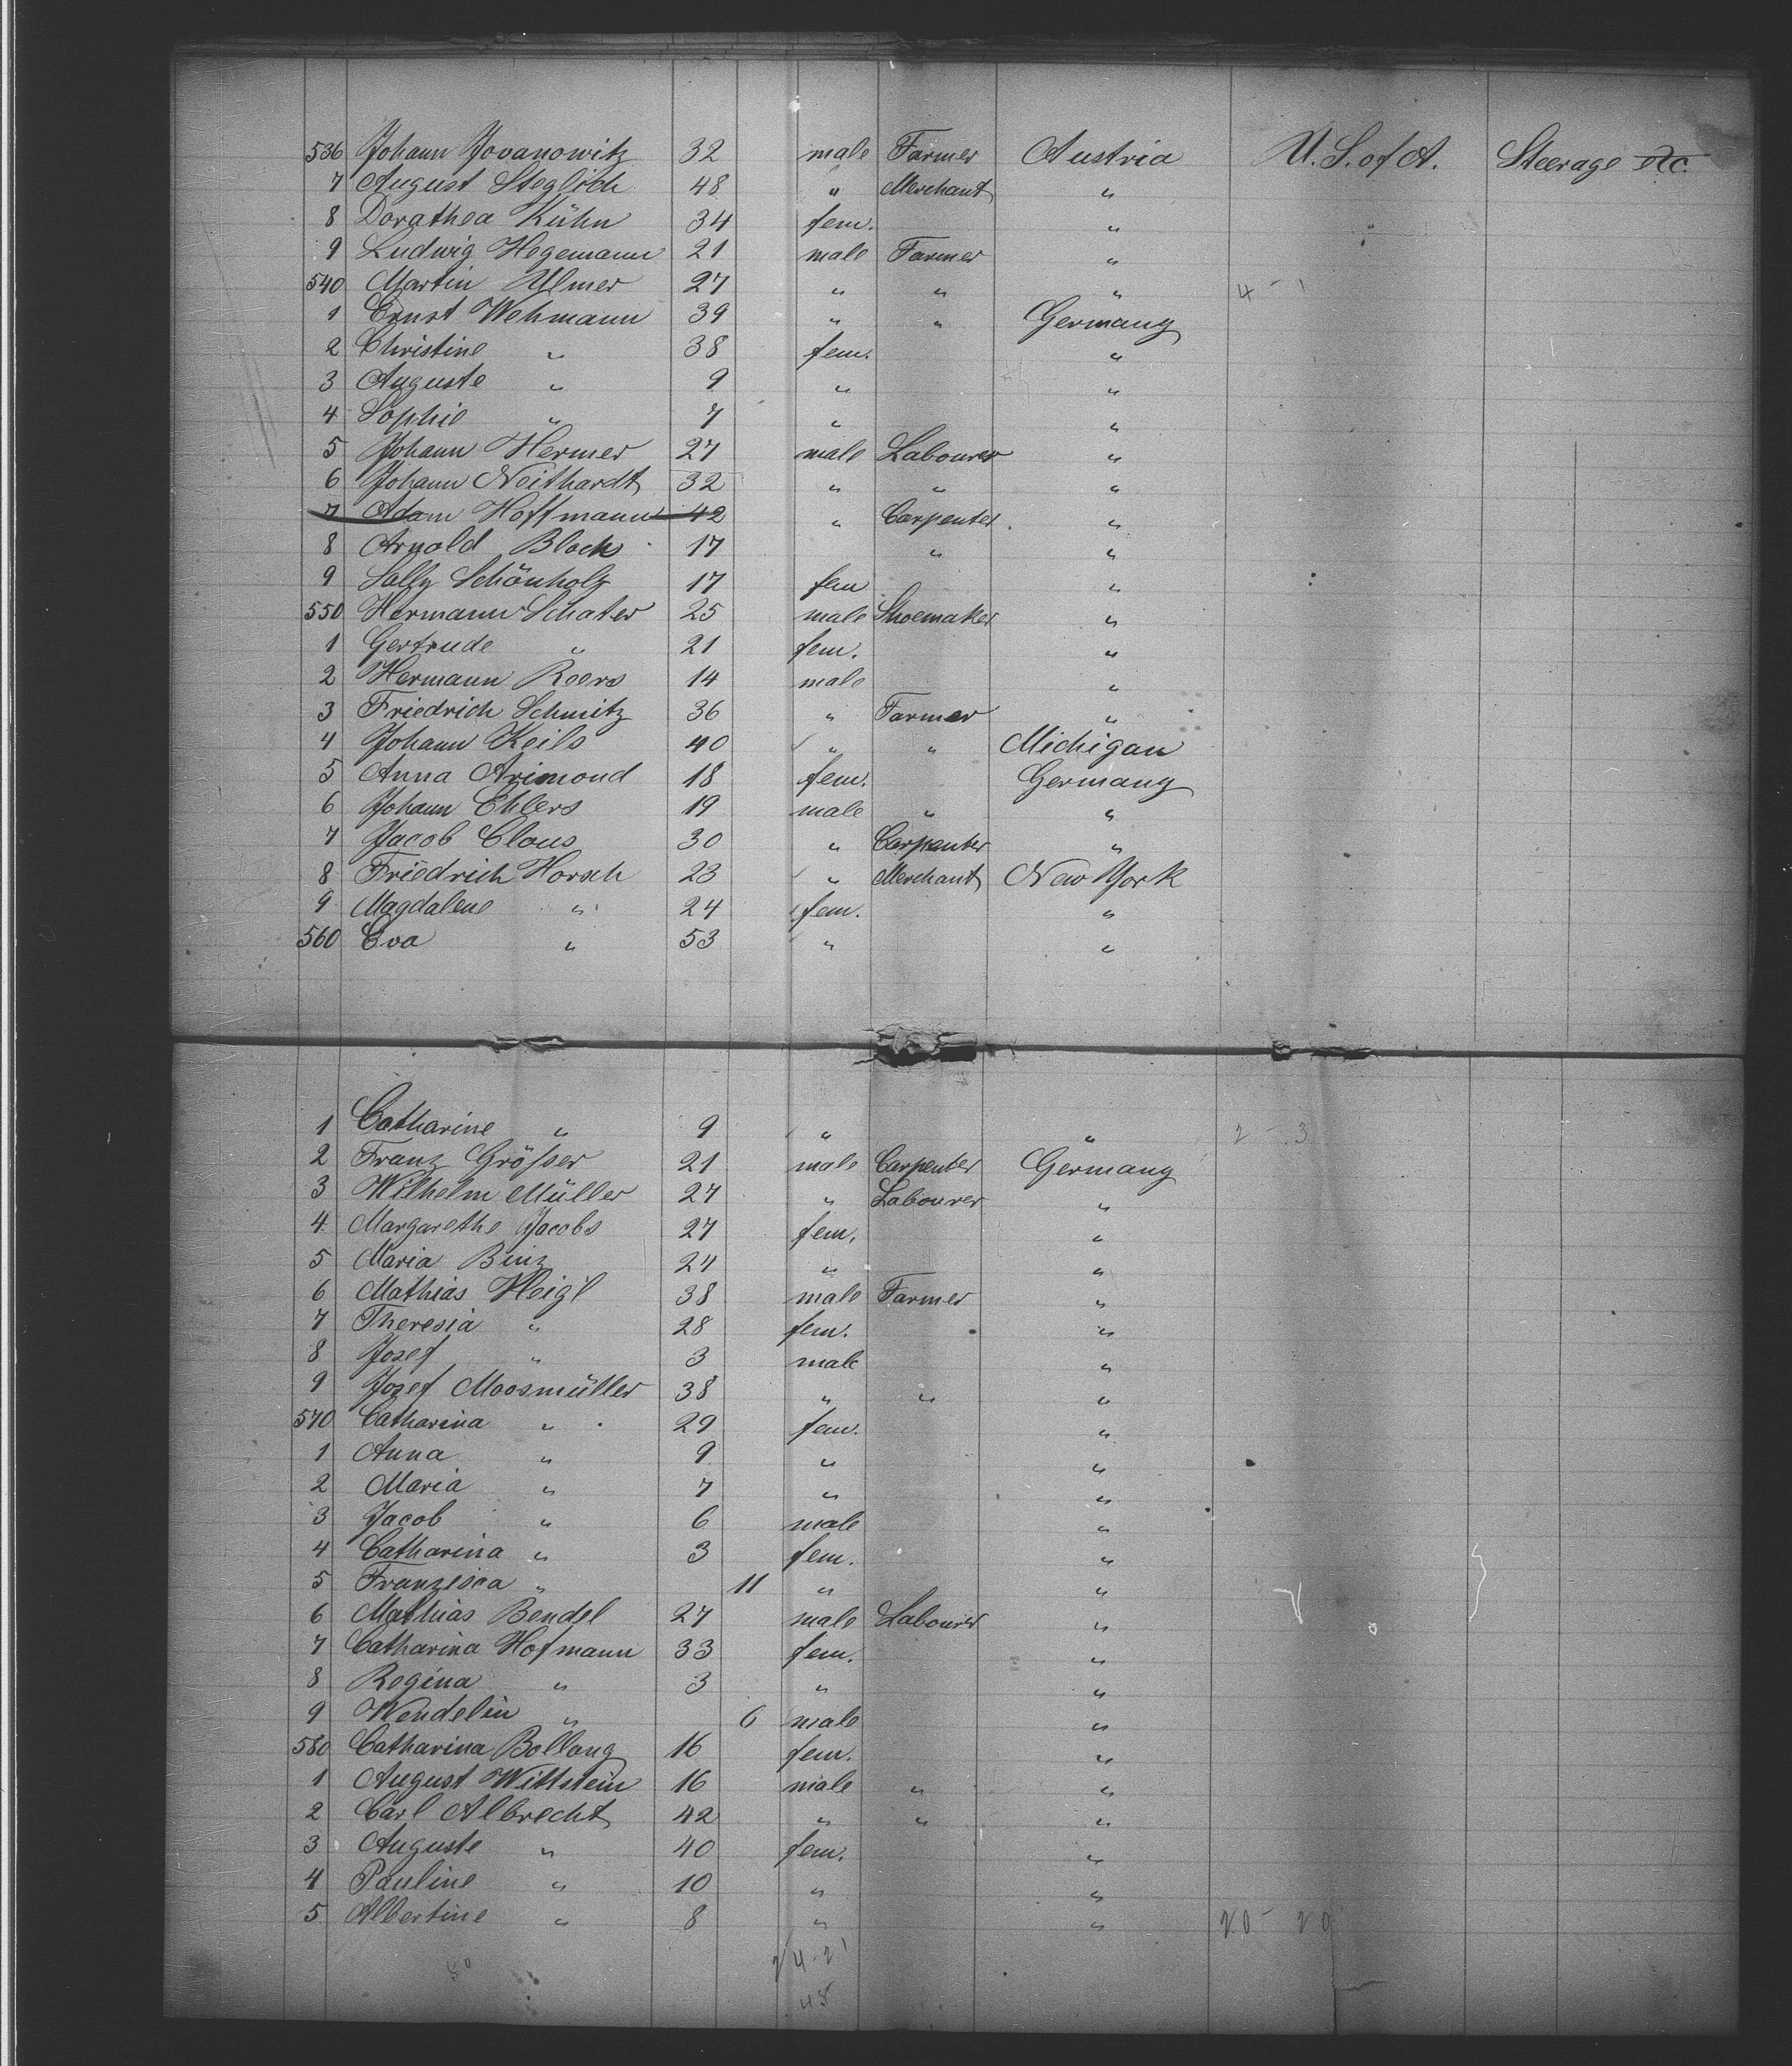 536 Johann Jovanowitz 32 male Farmer Austria U. S. of A. Steerage etc.
7 August Steglich 48 " Merchant "
8 Dorathea Kühn 34 fem. "
9 Ludwig Hegemann 21 male Farmer "
540 Martin Ulmer 27 " " " 4 - 1
1 Ernst Wehmann 39 " " Germany
2 Christine " 38 fem. "
3 Auguste " 9 " "
4 Sophie " 7 " "
5 Johann Hermer 27 male Labourer "
6 Johann Neithardt 32 " " "
7 Adam Hoffmann 42 " Carpenter "
8 Arnold Bloch 17 " "
9 Sally Schönholz 17 fem "
550 Hermann Schater 25 male Shoemaker "
1 Gertrude " 21 fem. "
2 Hermann Roers 14 male "
3 Friedrich Schmitz 36 " Farmer "
4 Johann Keils 40 " " Michigan
5 Anna Arimond 18 fem. Germany
6 Johann Ehlers 19 male " "
7 Jacob Claus 30 " Carpenter "
8 Friedrich Horsch 23 " Merchant New York
9 Magdalene " 24 fem. "
560 Eva " 53 " "
1 Catharine " 9 " " 2 - 3
2 Franz Größer 21 male Carpenter Germany
3 Wilhelm Müller 27 " Labourer "
4 Margarethe Jacobs 27 fem. "
5 Maria Binz 24 " "
6 Mathias Heigl 38 male Farmer "
7 Theresia " 28 fem. "
8 Josef " 3 male "
9 Josef Moosmüller 38 " " "
570 Catharina " 29 fem. "
1 Anna " 9 " "
2 Maria " 7 " "
3 Jacob " 6 male "
4 Catharina " 3 fem. "
5 Franzisca " 11 " "
6 Mathias Bendel 27 male Labourer "
7 Catharina Hofmann 33 fem. "
8 Regina " 3 " "
9 Wendelin " 6 male "
580 Catharina Bollang 16 fem. "
1 August Wittstein 16 male " "
2 Carl Albrecht 42 " " "
3 Auguste " 40 fem. "
4 Pauline " 10 " "
5 Albertine " 8 " " 20 - 20
24-21
45